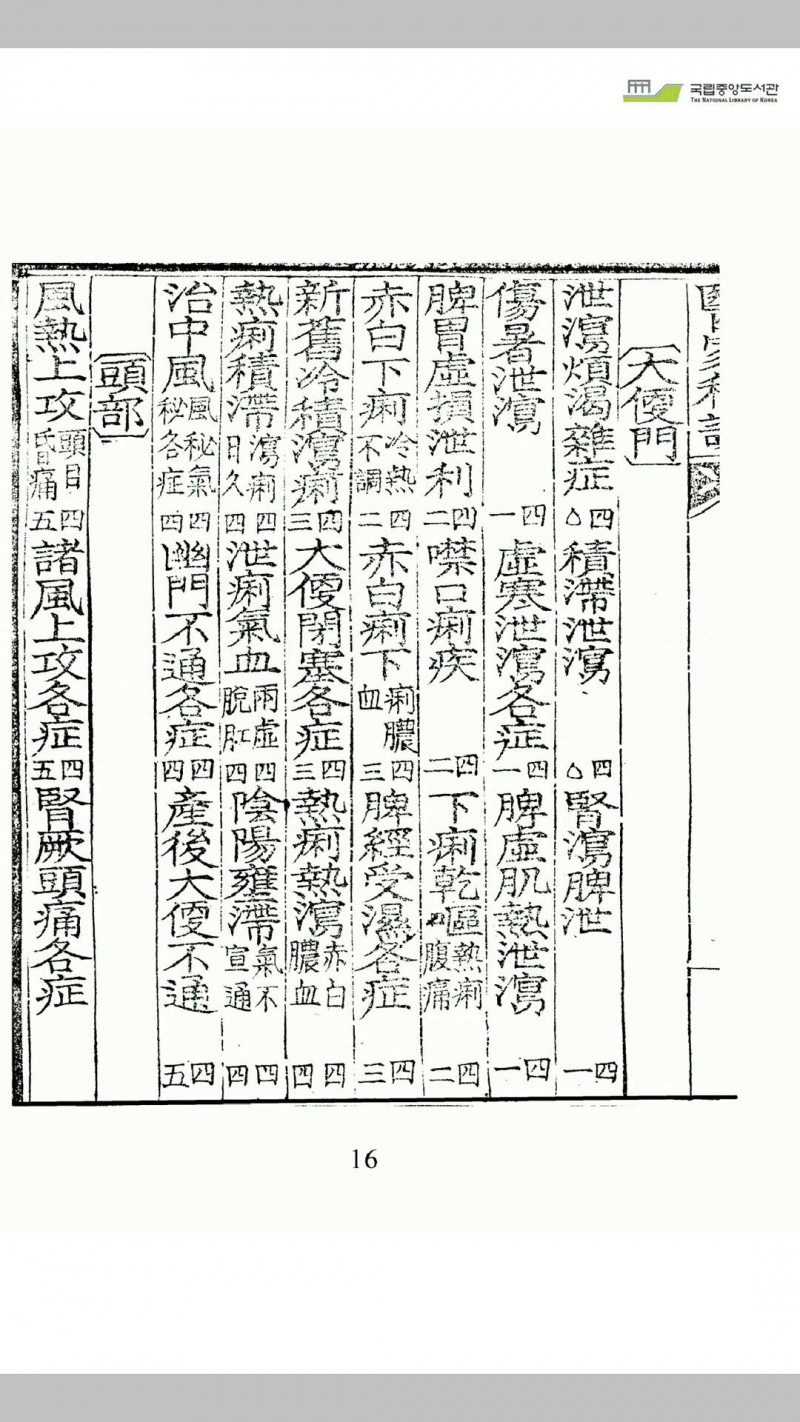 국립중앙도서관
THE NATIONAL LIBRARY OF KOREA
【大便門】
泄瀉煩渴雜症 四〇 積滯泄瀉 四〇 腎瀉脾泄 四一
傷暑泄瀉 四一 虛寒泄瀉各症 四一 脾虛肌熱泄瀉 四一
脾胃虛損泄利 四二 噤口痢疾 四二 下痢乾嘔 熱痢腹痛 四二
赤白下痢 冷熱不調 四二 赤白痢下 痢膿血 四三 脾經受濕各症 四三
新舊冷積瀉痢 四三 大便閉塞各症 四三 熱痢熱瀉 赤白膿血 四四
熱痢積滯 瀉痢日久 四四 泄痢氣血 兩虛脫肛 四四 陰陽壅滯 氣不宣通 四四
治中風 風秘氣秘各症 四四 幽門不通各症 四四 產後大便不通 四五
【頭部】
風熱上攻 頭目昏痛 四五 諸風上攻各症 四五 腎厥頭痛各症
16